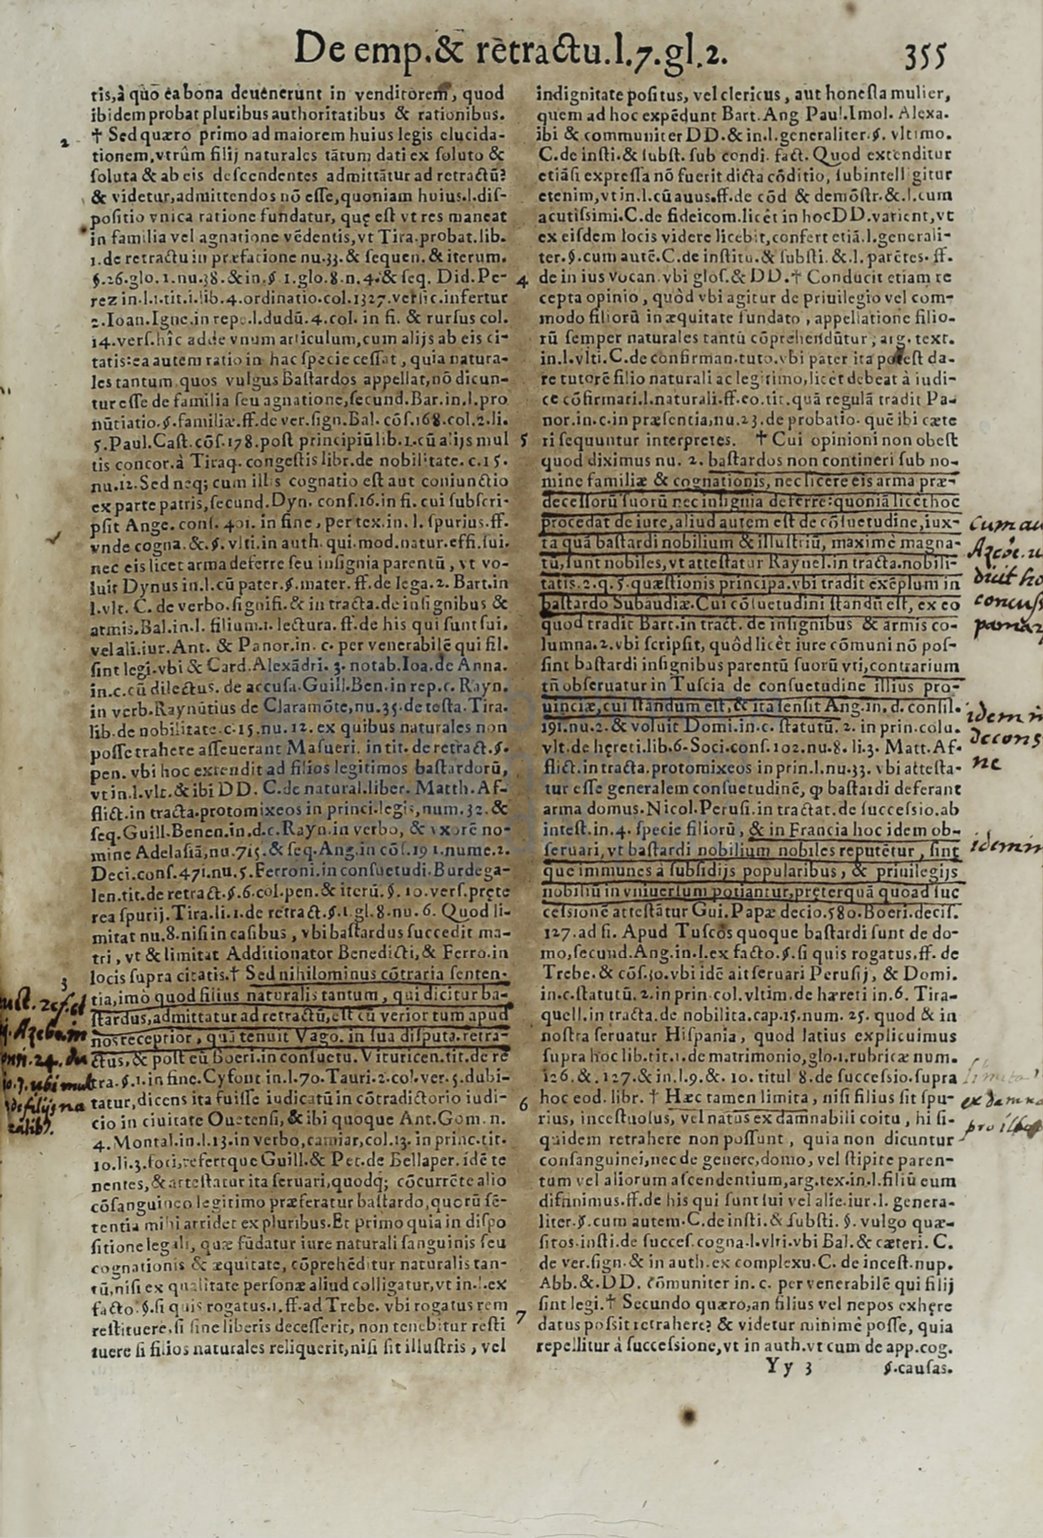 De emp.& rètractu.l.7.gl.2.
355
tis,à quo ea bona deuenerunt in venditorem, quod
ibidem probat pluribus authoritatibus & rationibus.
2
† Sed quæro primo ad maiorem huius legis elucida-
tionem,vtrũm filij naturales tãtum dati ex soluto &
soluta & ab eis descendentes admittãtur ad retractũ?
& videtur,admittendos nõ esse,quoniam huius.l.dis-
positio vnica ratione fundatur, quę est vt res maneat
in familia vel agnatione vẽdentis,vt Tira.probat.lib.
1.de retractu in præfatione nu.33.& sequen.& iterum.
§.26.glo.1.nu.38.&in.§ 1.glo.8.n.4.& seq. Did.Pe-
rez in.l.1.tit.i.lib.4.ordinatio.col.1327.versic.infertur
2.Ioan.Igne.in repe.l.dudũ.4.col. in fi. & rursus col.
14.vers.hîc adde vnum articulum,cum alijs ab eis ci-
tatis:ea autem ratio in hac specie cessat, quia natura-
les tantum quos vulgus Bastardos appellat,nõ dicun-
tur esse de familia seu agnatione,secund.Bar.in.l.pro
nũtiatio.§.familiæ.ff.de ver.sign.Bal. cõs.168.col.2.li.
5.Paul.Cast.cõs.178.post principiũ lib.1.cũ alijs mul
tis concor.à Tiraq. congestis libr.de nobilitate. c.15.
nu.12.Sed neq; cum illis cognatio est aut coniunctio
ex parte patris,secund.Dyn. cons.16.in fi. cui subscri-
psit Ange.cons. 401. in fine, per tex.in. l. spurius.ff.
vnde cogna.&.§.vlti.in auth.qui.mod.natur.effi.sui.
nec eis licet arma deferre seu insignia parentũ, vt vo-
luit Dynus in.l.cũ pater.§.mater. ff.de lega.2. Bart.in
l.vlt. C. de verbo.signifi.& in tracta.de insignibus &
armis.Bal.in.l. filium.1. lectura. ff.de his qui sunt sui.
vel ali.iur.Ant. & Panor.in. c. per venerabilẽ qui fil.
sint legi.vbi & Card.Alexãdri. 3. notab.Ioa.de Anna.
in.c.cũ dilectus. de accusa.Guill.Ben.in rep.c. Rayn.
in verb.Raynũtius de Claramõte,nu.35.de testa.Tira.
lib.de nobilitate.c.15.nu.12. ex quibus naturales non
posse trahere asseuerant Masueri. in tit. de retract.§.
pen. vbi hoc extendit ad filios legitimos bastardorũ,
vt in.l.vlt.& ibi DD. C.de natural.liber. Matth.Af-
flict.in tracta.protomixeos in princi.legis,num.32.&
seq.Guill.Benen.in.d.c.Rayn.in verbo, & vxorẽ no-
mine Adelasiã,nu.715.& seq.Ang.in cõs.191.nume.2.
Deci.cons.471.nu.5.Ferroni.in consuetudi.Burdega-
len.tit.de retract.§.6.col.pen.& iterũ.§.10.vers.pręte
rea spurij.Tira.li.1.de retract.§.1.gl.8.nu.6. Quod li-
mitat nu.8.nisi in casibus, vbi bastardus succedit ma-
tri, vt & limitat Additionator Benedicti,& Ferro.in
3
locis supra citatis.† Sed nihilominus cõtraria senten-
tia,imò quod filius naturalis tantum, qui dicitur ba-
stardus,admittatur ad retractũ,est cũ verior tum apud
nos receptior, quã tenuit Vago. in sua disputa.retra-
ctus,& post eũ Boeri.in consuetu. Vituricen.tit.de re
tra.§.1.in fine.Cyfont in.l.70.Tauri.2.col.ver.5.dubi-
tatur,dicens ita fuisse iudicatũ in cõtradictorio iudi-
cio in ciuitate Ouetensi,& ibi quoque Ant.Gom.n.
4.Montal.in.l.13.in verbo,camiar,col.13. in princ.tit.
10.li.3.fori,refertque Guill.& Pet.de Bellaper.idẽ te
nentes,& attestatur ita seruari,quodq; cõcurrẽte alio
cõsanguineo legitimo præferatur bastardo,quorũ sẽ-
tentia mihi arridet ex pluribus.Et primo quia in dispo
sitione legali, quæ fũdatur iure naturali sanguinis seu
cognationis & æquitate, cõprehẽditur naturalis tan-
tũ,nisi ex qualitate personæ aliud colligatur,vt in.l.ex
facto.§.si quis rogatus.1.ff.ad Trebe. vbi rogatus rem
restituere,si sine liberis decesserit, non tenebitur resti
tuere si filios naturales reliquerit,nisi sit illustris, vel
indignitate positus, vel clericus, aut honesta mulier,
quem ad hoc expẽdunt Bart.Ang Paul.Imol. Alexa.
ibi & communiter DD.& in.l.generaliter.§. vltimo.
C.de insti.& subst. sub condi. fact. Quod extenditur
etiãsi expressa nõ fuerit dicta cõditio, subintelligitur
etenim,vt in.l.cũ auus.ff.de cõd & demõstr.&.l.cum
acutissimi.C.de fideicom.licèt in hoc DD.varient,vt
ex eisdem locis videre licebit,confert etiã.l.generali-
ter.§.cum autẽ.C.de institu.& substi.&.l.parẽtes.ff.
4
de in ius vocan.vbi glos.& DD.† Conducit etiam re
cepta opinio, quòd vbi agitur de priuilegio vel com-
modo filiorũ in æquitate fundato, appellatione filio-
rũ semper naturales tantũ cõprehendũtur, arg. text.
in.l.vlti.C.de confirman.tuto.vbi pater ita potest da-
re tutorẽ filio naturali ac legitimo,licèt debeat à iudi-
ce cõfirmari.l.naturali.ff.eo.tit.quã regulã tradit Pa-
nor.in.c.in præsentia,nu.23.de probatio. quẽ ibi cæte
5
ri sequuntur interpretes. † Cui opinioni non obest
quod diximus nu. 2. bastardos non contineri sub no-
mine familiæ & cognationis, nec licere eis arma præ-
decessorũ suorũ nec insignia deferre:quoniã licèt hoc
procedat de iure,aliud autem est de cõsuetudine,iux-
ta quã bastardi nobilium & illustriũ, maximè magna-
tũ,sunt nobiles,vt attestatur Raynel.in tracta.nobili-
tatis.2.q.5.quæstionis principa.vbi tradit exẽplum in
bastardo Subaudiæ.Cui cõsuetudini standũ est, ex eo
quod tradit Bart.in tract. de insignibus & armis co-
lumna.2.vbi scripsit, quòd licèt iure cõmuni nõ pos-
sint bastardi insignibus parentũ suorũ vti,contrarium
tñ obseruatur in Tuscia de consuetudine illius pro-
uinciæ,cui standum est,& ita sensit Ang.in.d.consil.
191.nu.2.& voluit Domi.in.c. statutũ. 2. in prin.colu.
vlt.de hęreti.lib.6.Soci.cons.102.nu.8. li.3. Matt.Af-
flict.in tracta.protomixeos in prin.l.nu.33. vbi attesta-
tur esse generalem consuetudinẽ, ꝙ bastardi deferant
arma domus.Nicol.Perusi.in tractat.de successio.ab
intest.in.4. specie filiorũ, & in Francia hoc idem ob-
seruari,vt bastardi nobilium nobiles reputẽtur, sint
que immunes à subsidijs popularibus, & priuilegijs
nobiliũ in vniuersum potiantur,pręterquã quoad suc
cessionẽ attestãtur Gui.Papæ decio.580.Boeri.decis.
127.ad fi. Apud Tuscos quoque bastardi sunt de do-
mo,secund.Ang.in.l.ex facto.§.si quis rogatus.ff. de
Trebe.& cõs.50.vbi idẽ ait seruari Perusij, & Domi.
in.c.statutũ.2.in prin.col.vltim.de hæreti in.6. Tira-
quell.in tracta.de nobilita.cap.15.num. 25. quod & in
nostra seruatur Hispania, quod latius explicuimus
supra hoc lib.tit.1.de matrimonio,glo.1.rubricæ num.
126.&.127.& in.l.9.&. 10. titul 8.de successio.supra
6
hoc eod. libr. † Hæc tamen limita, nisi filius sit spu-
rius, incestuosus, vel natus ex damnabili coitu, hi si-
quidem retrahere non possunt, quia non dicuntur
consanguinei,nec de genere,domo, vel stipite paren-
tum vel aliorum ascendentium,arg.tex.in.l.filiũ eum
diffinimus.ff.de his qui sunt sui vel alie.iur.l. genera-
liter.§.cum autem.C.de insti.& substi. §. vulgo quæ-
sitos.insti.de succes.cogna.l.vlti.vbi Bal.& cæteri. C.
de ver.sign.& in auth.ex complexu.C. de incest.nup.
Abb.&.DD. cõmuniter in. c. per venerabilẽ qui filij
7
sint legi.† Secundo quæro,an filius vel nepos exhęre
datus possit retrahere? & videtur minimè posse, quia
repellitur à successione,vt in auth.vt cum de app.cog.
Yy 3
§.causas.
idem
idem